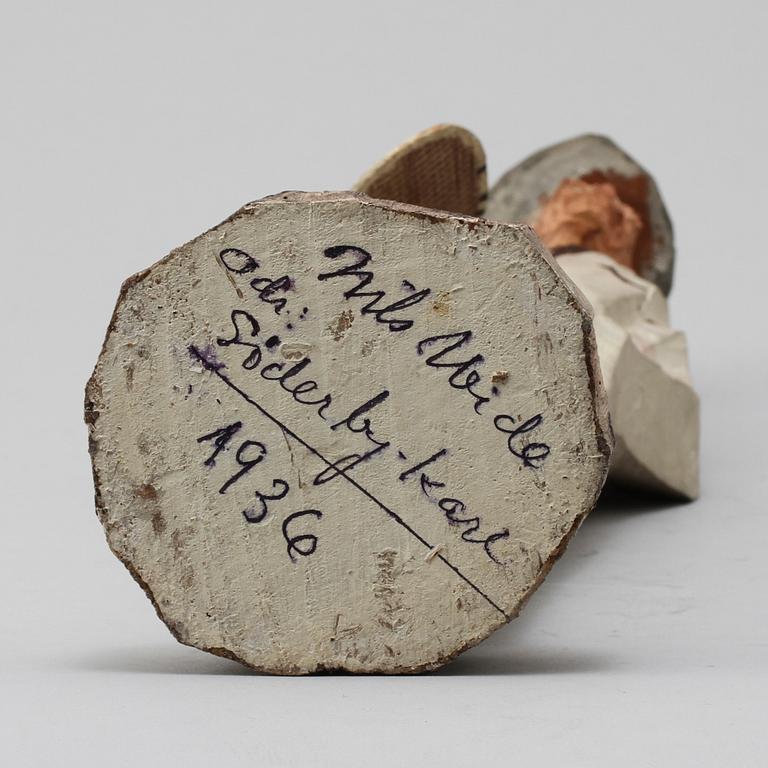 Nils Weide
adr:
Söderby-Karl
1936